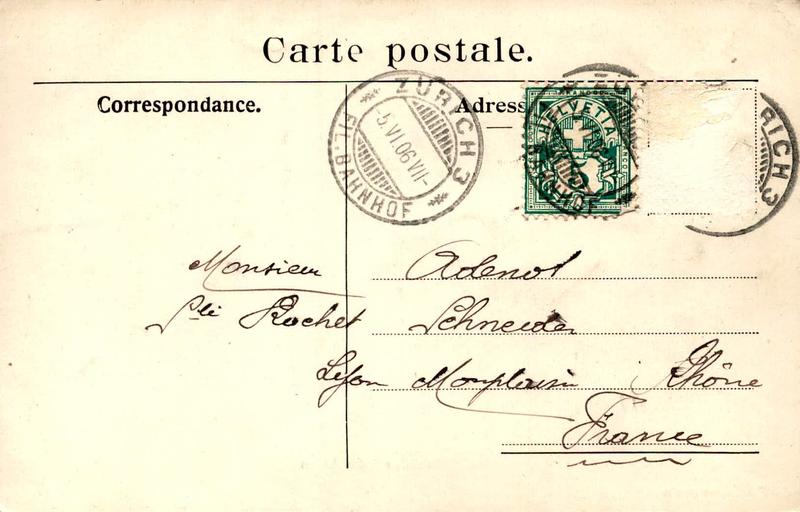 Carte postale.
Correspondance.
Adress
ZÜRICH 3
-5.VI.06.VII-
FIL. BAHNHOF
HELVETIA
5
RICH 3
Monsieur Adenot
Rochet Schneider
Lyon Monplaisir Rhône
France